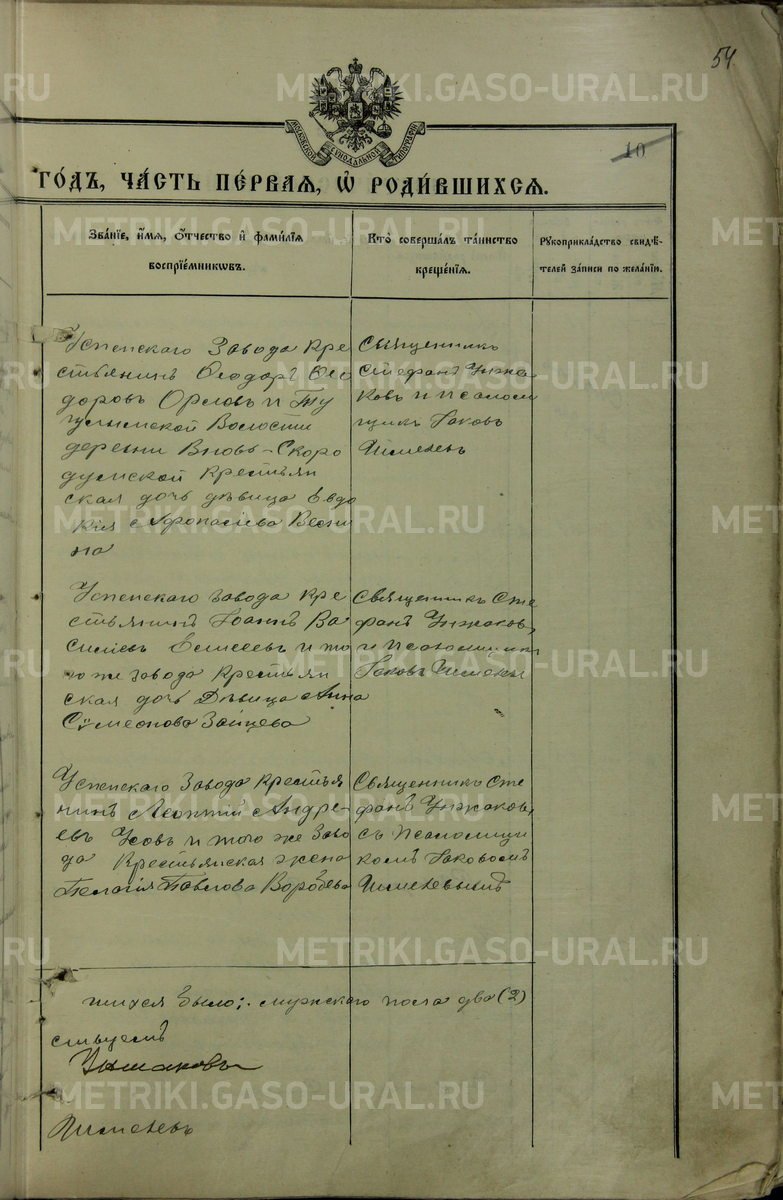 54.
МОСКОВСКОЙ СѴНОДАЛЬНОЙ ТИПОГРАФІИ
10
ГО́ДЪ, ЧА́СТЬ ПЕ́РВАЯ, Ѡ҆ РОДИ́ВШИХСЯ.
Зва́нїе, и҆́мя, ѻ҆́тчество и҆ фами́лїя
воспрїе́мниковъ.
Кто̀ соверша́лъ та́инство
креще́нїя.
Рꙋкоприкла́дство свидѣ́-
телей за́писи по жела́нїю.
Успенскаго Завода Кре
стьянинъ Ѳеодоръ Ѳео
доровъ Орловъ и Ту
гулымской Волости
деревни Вновь-Скоро
думской Крестьян
ская дочь дѣвица Евдо
кія Афонасіева
Священникъ
Стефанъ
и псалом
щикъ Іаковъ
Пименовъ
Успенскаго завода Кре
стьянинъ Іоаннъ Ва
силіевъ Елисеевъ и то
го же завода Крестьян
ская дочь Дѣвица Анна
Сѵмеонова Зайцева
Священникъ Сте
фанъ
и псаломщикъ
Іаковъ
Успенскаго Завода Крестья
нинъ Леонтій Андре-
евъ Усовъ и того же Заво
да Крестьянская жена
Пелагія Павлова Воробьева
Священникъ Сте
фанъ
съ Псаломщи
комъ Іаковомъ
Пименовымъ
шихся было: мужскаго пола два (2)
ствуемъ
Пименовъ
METRIKI.GASO-URAL.RU